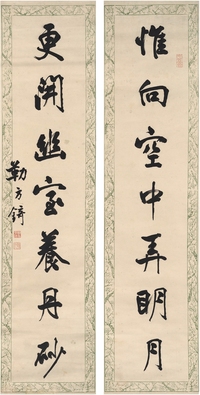 惟向空中弄明月
更開幽室養丹砂
勒方錡